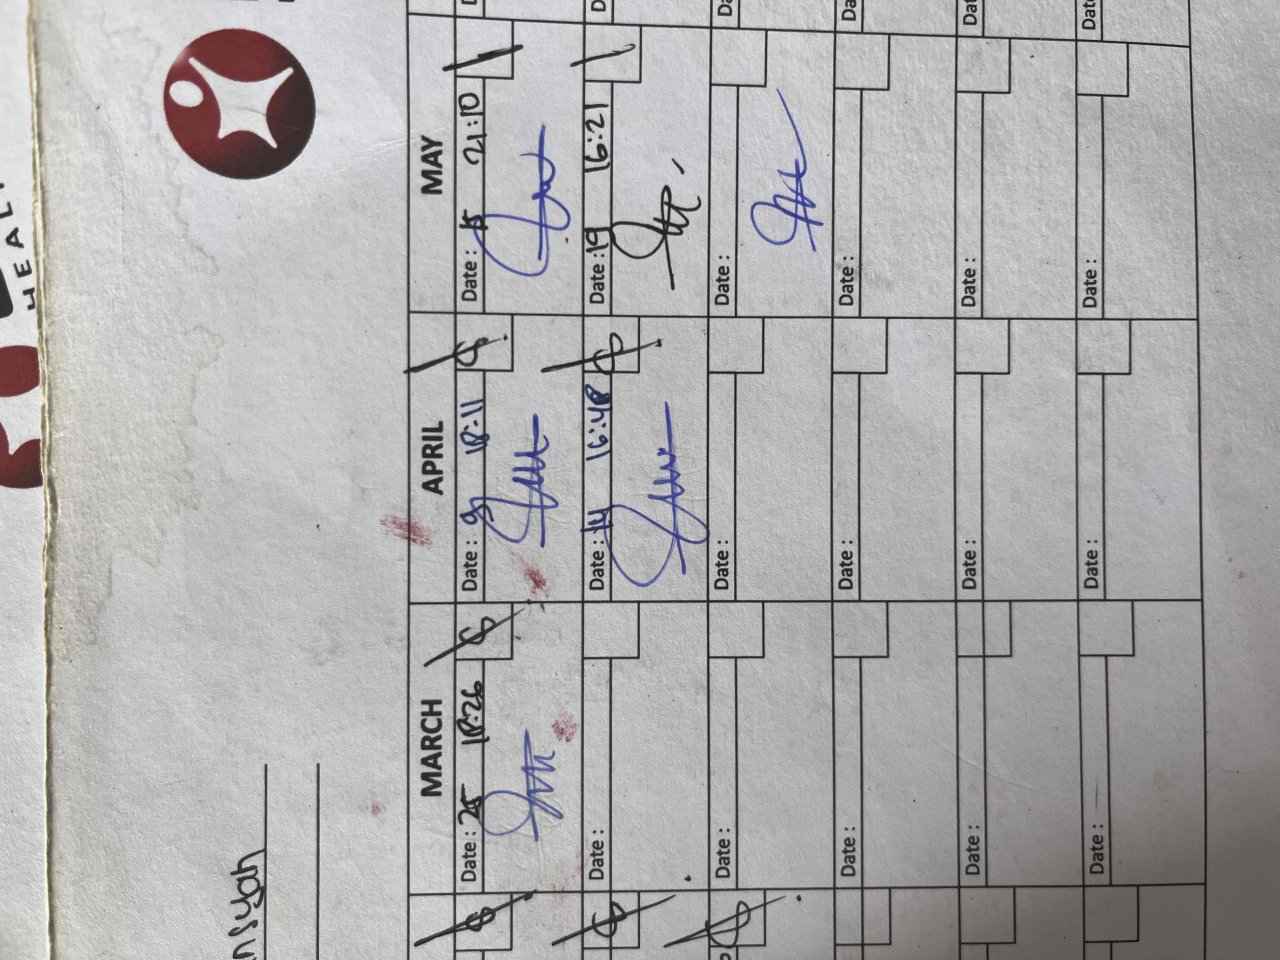 HEAL
nsyah
MARCH APRIL MAY
Date : 25 18:26
Date : 9 18:11
Date : 15 21:10
Date :
Date : 14 16:48
Date : 19 16:21
Date :
Date :
Date :
Date :
Date :
Date :
Date :
Date :
Date :
Date :
Date :
Date :